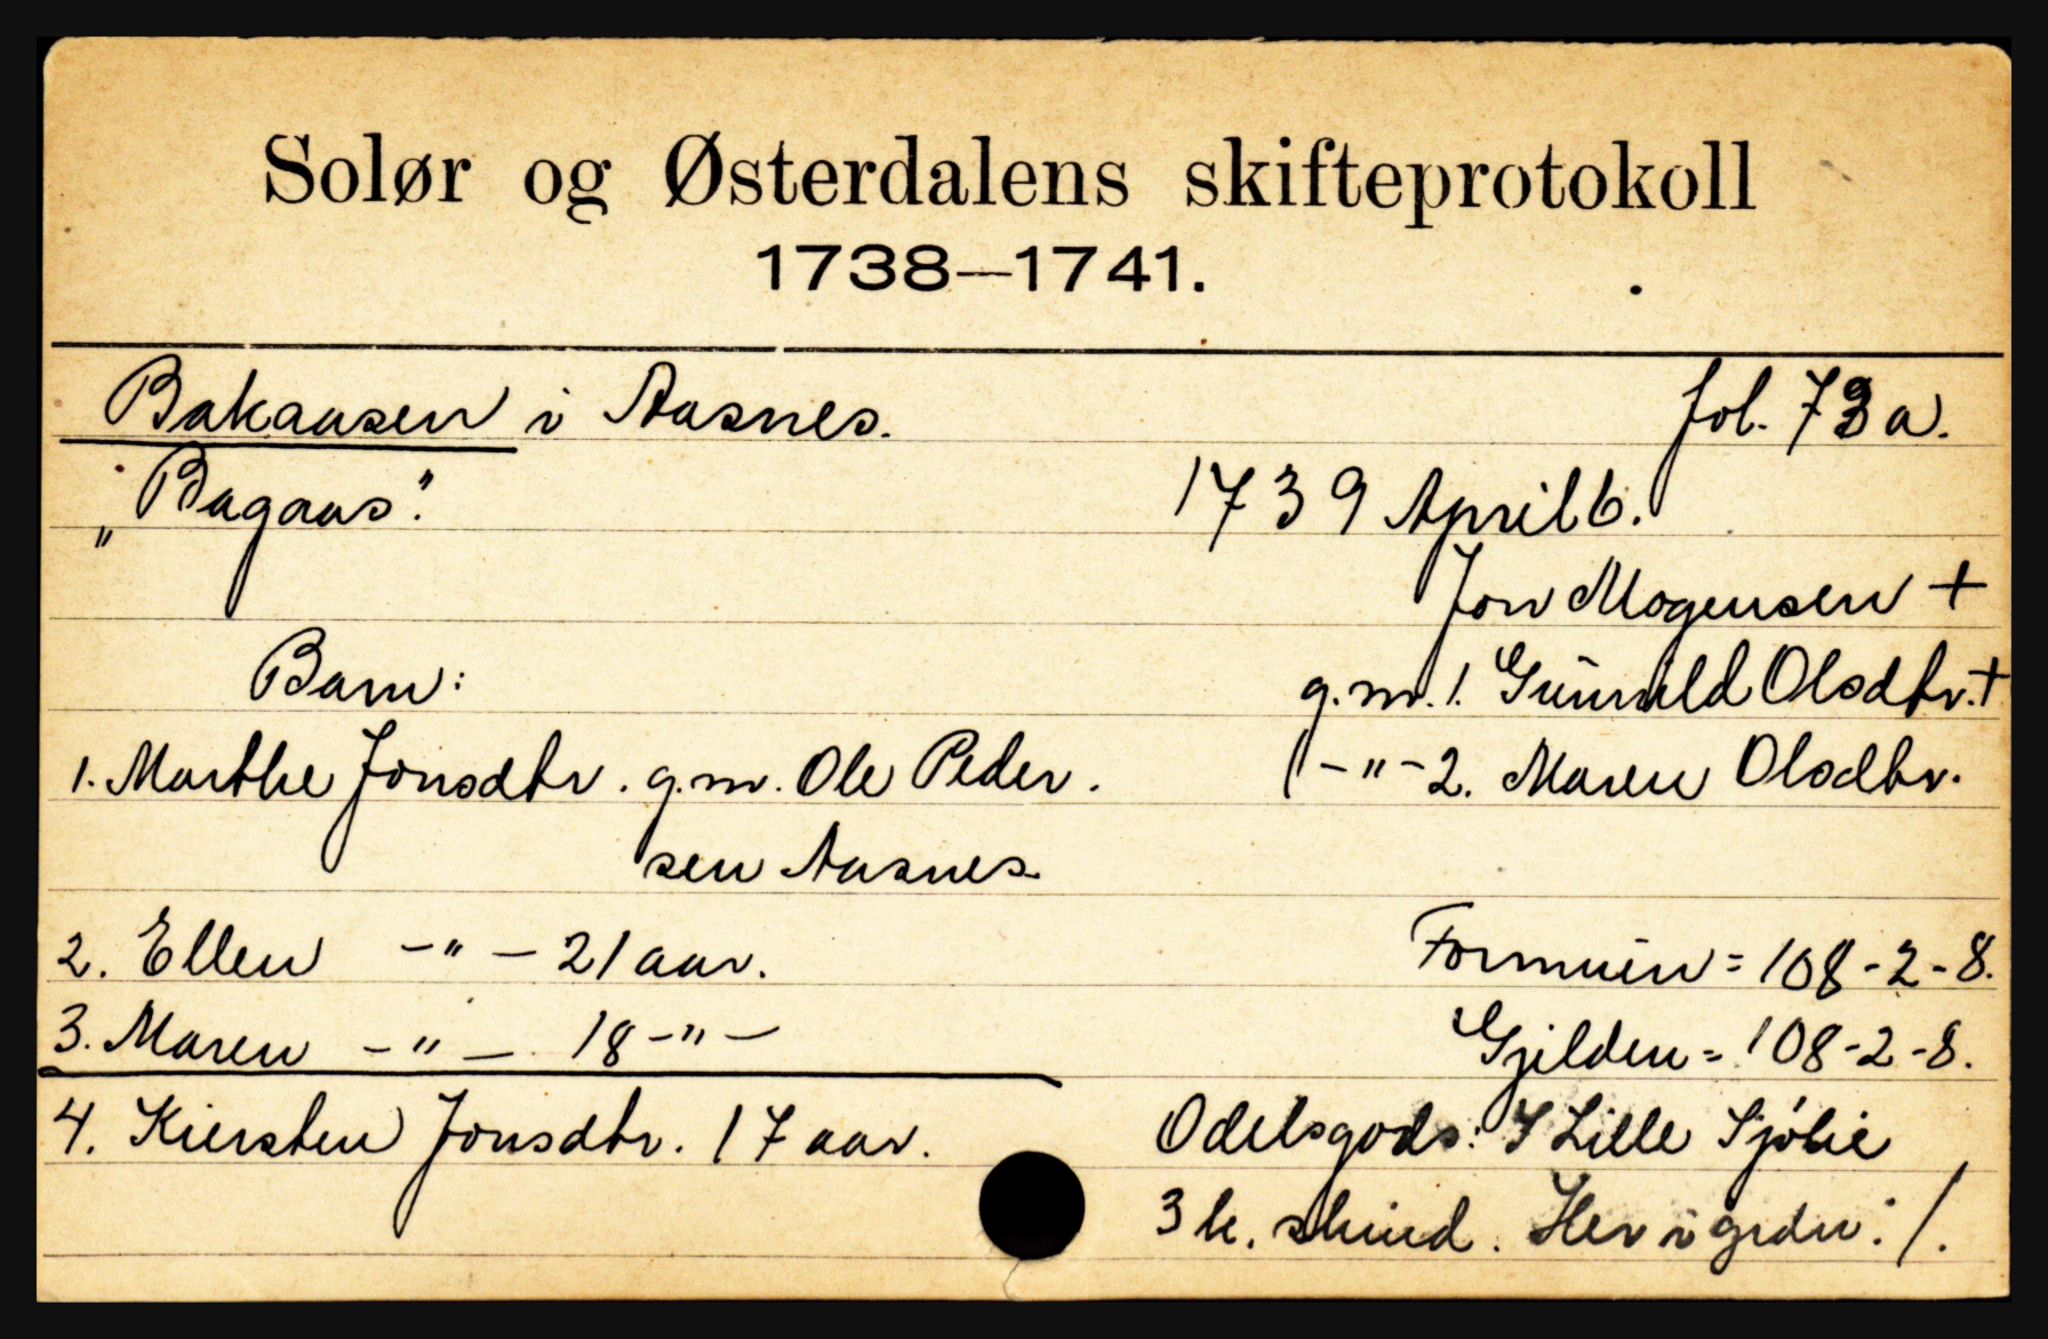 Solør og Østerdalens skifteprotokoll
1738—1741.
Bakaasen i Aasnes. fol. 73a.
„Bagaas". 1739 April 6.
Jon Mogensen +
Barn: g.m. 1. Gunnild Olsdtr. +
1. Marthe Jonsdtr. g.m. Ole Peder. -"- 2. Maren Olsdtr.
sen Aasnes.
2. Ellen -"- 21 aar. Formuen = 108-2-8.
3. Maren -"- 18 -"- Gjelden = 108-2-8.
4. Kiersten Jonsdtr. 17 aar. Odelsgods: I Lille Sjølie
3 h. skind. Her i grdn: /.